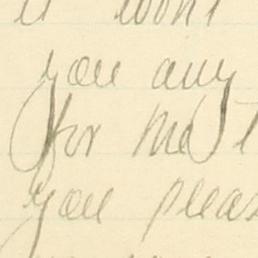 it wont
you any
for me t
you pleas